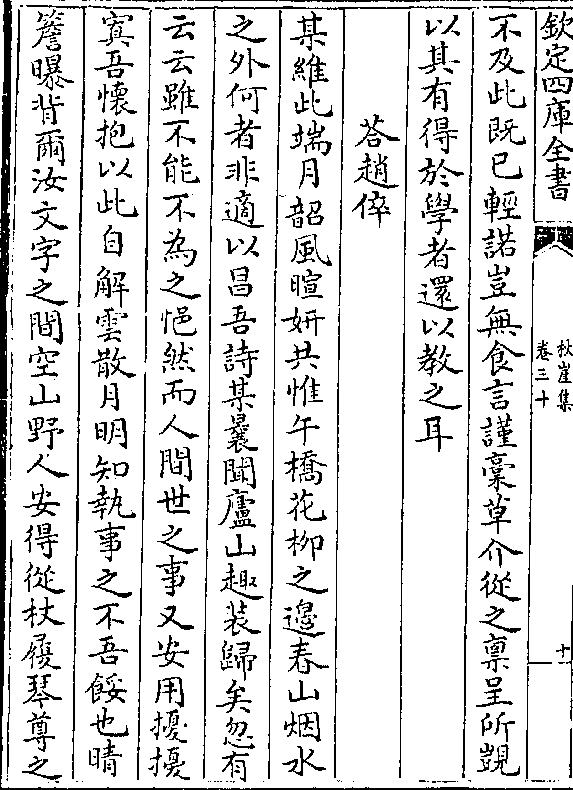 欽定四庫全書
秋崖集
卷三十
十一
不及此既已輕諾豈無食言謹藁草介從之禀呈所覬
以其有得於學者還以教之耳
荅趙倅
某維此端月韶風暄妍共惟午橋花柳之邊春山烟水
之外何者非適以昌吾詩某曩聞廬山趣装歸矣忽有
云云雖不能不為之悒然而人間世之事又安用擾擾
寘吾懐抱以此自解雲散月明知執事之不吾餒也晴
簷曝背爾汝文字之間空山野人安得從杖屨琴尊之